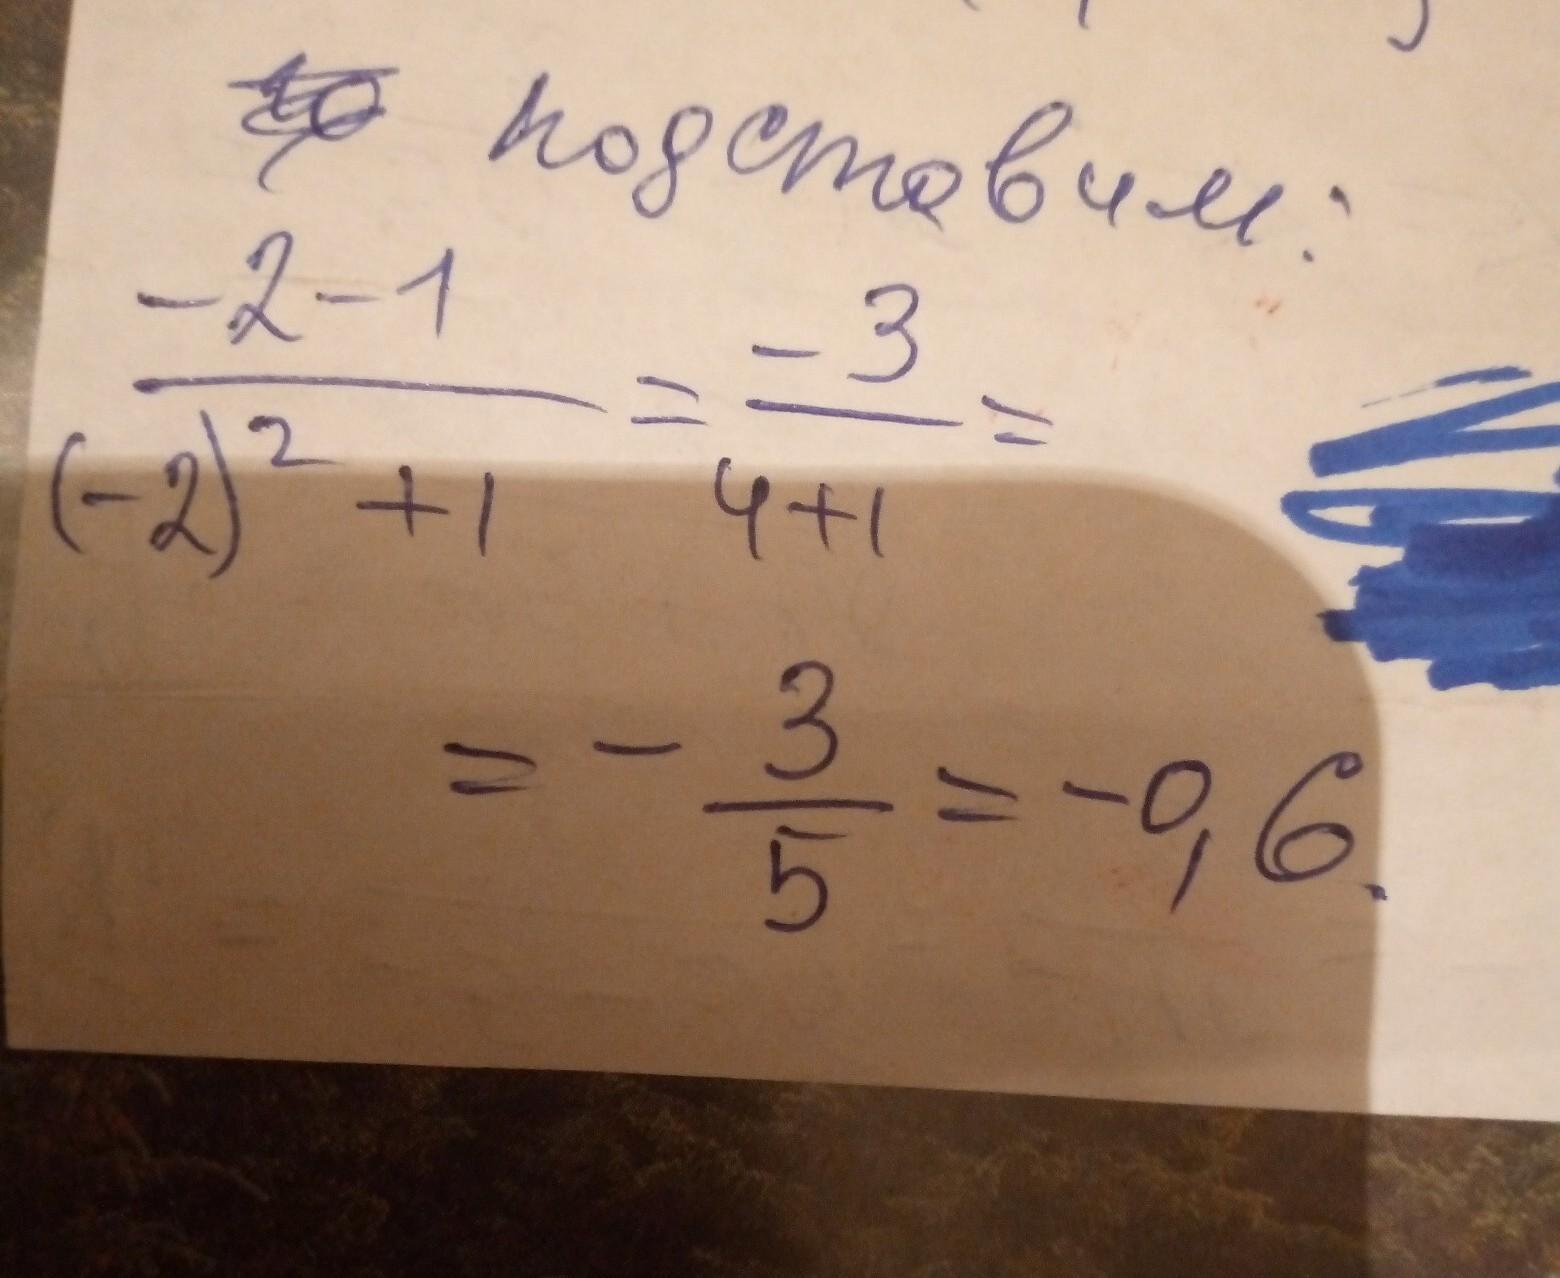 подставим:
-2-1/(-2)²+1 = -3/4+1 =
= - 3/5 = -0,6.